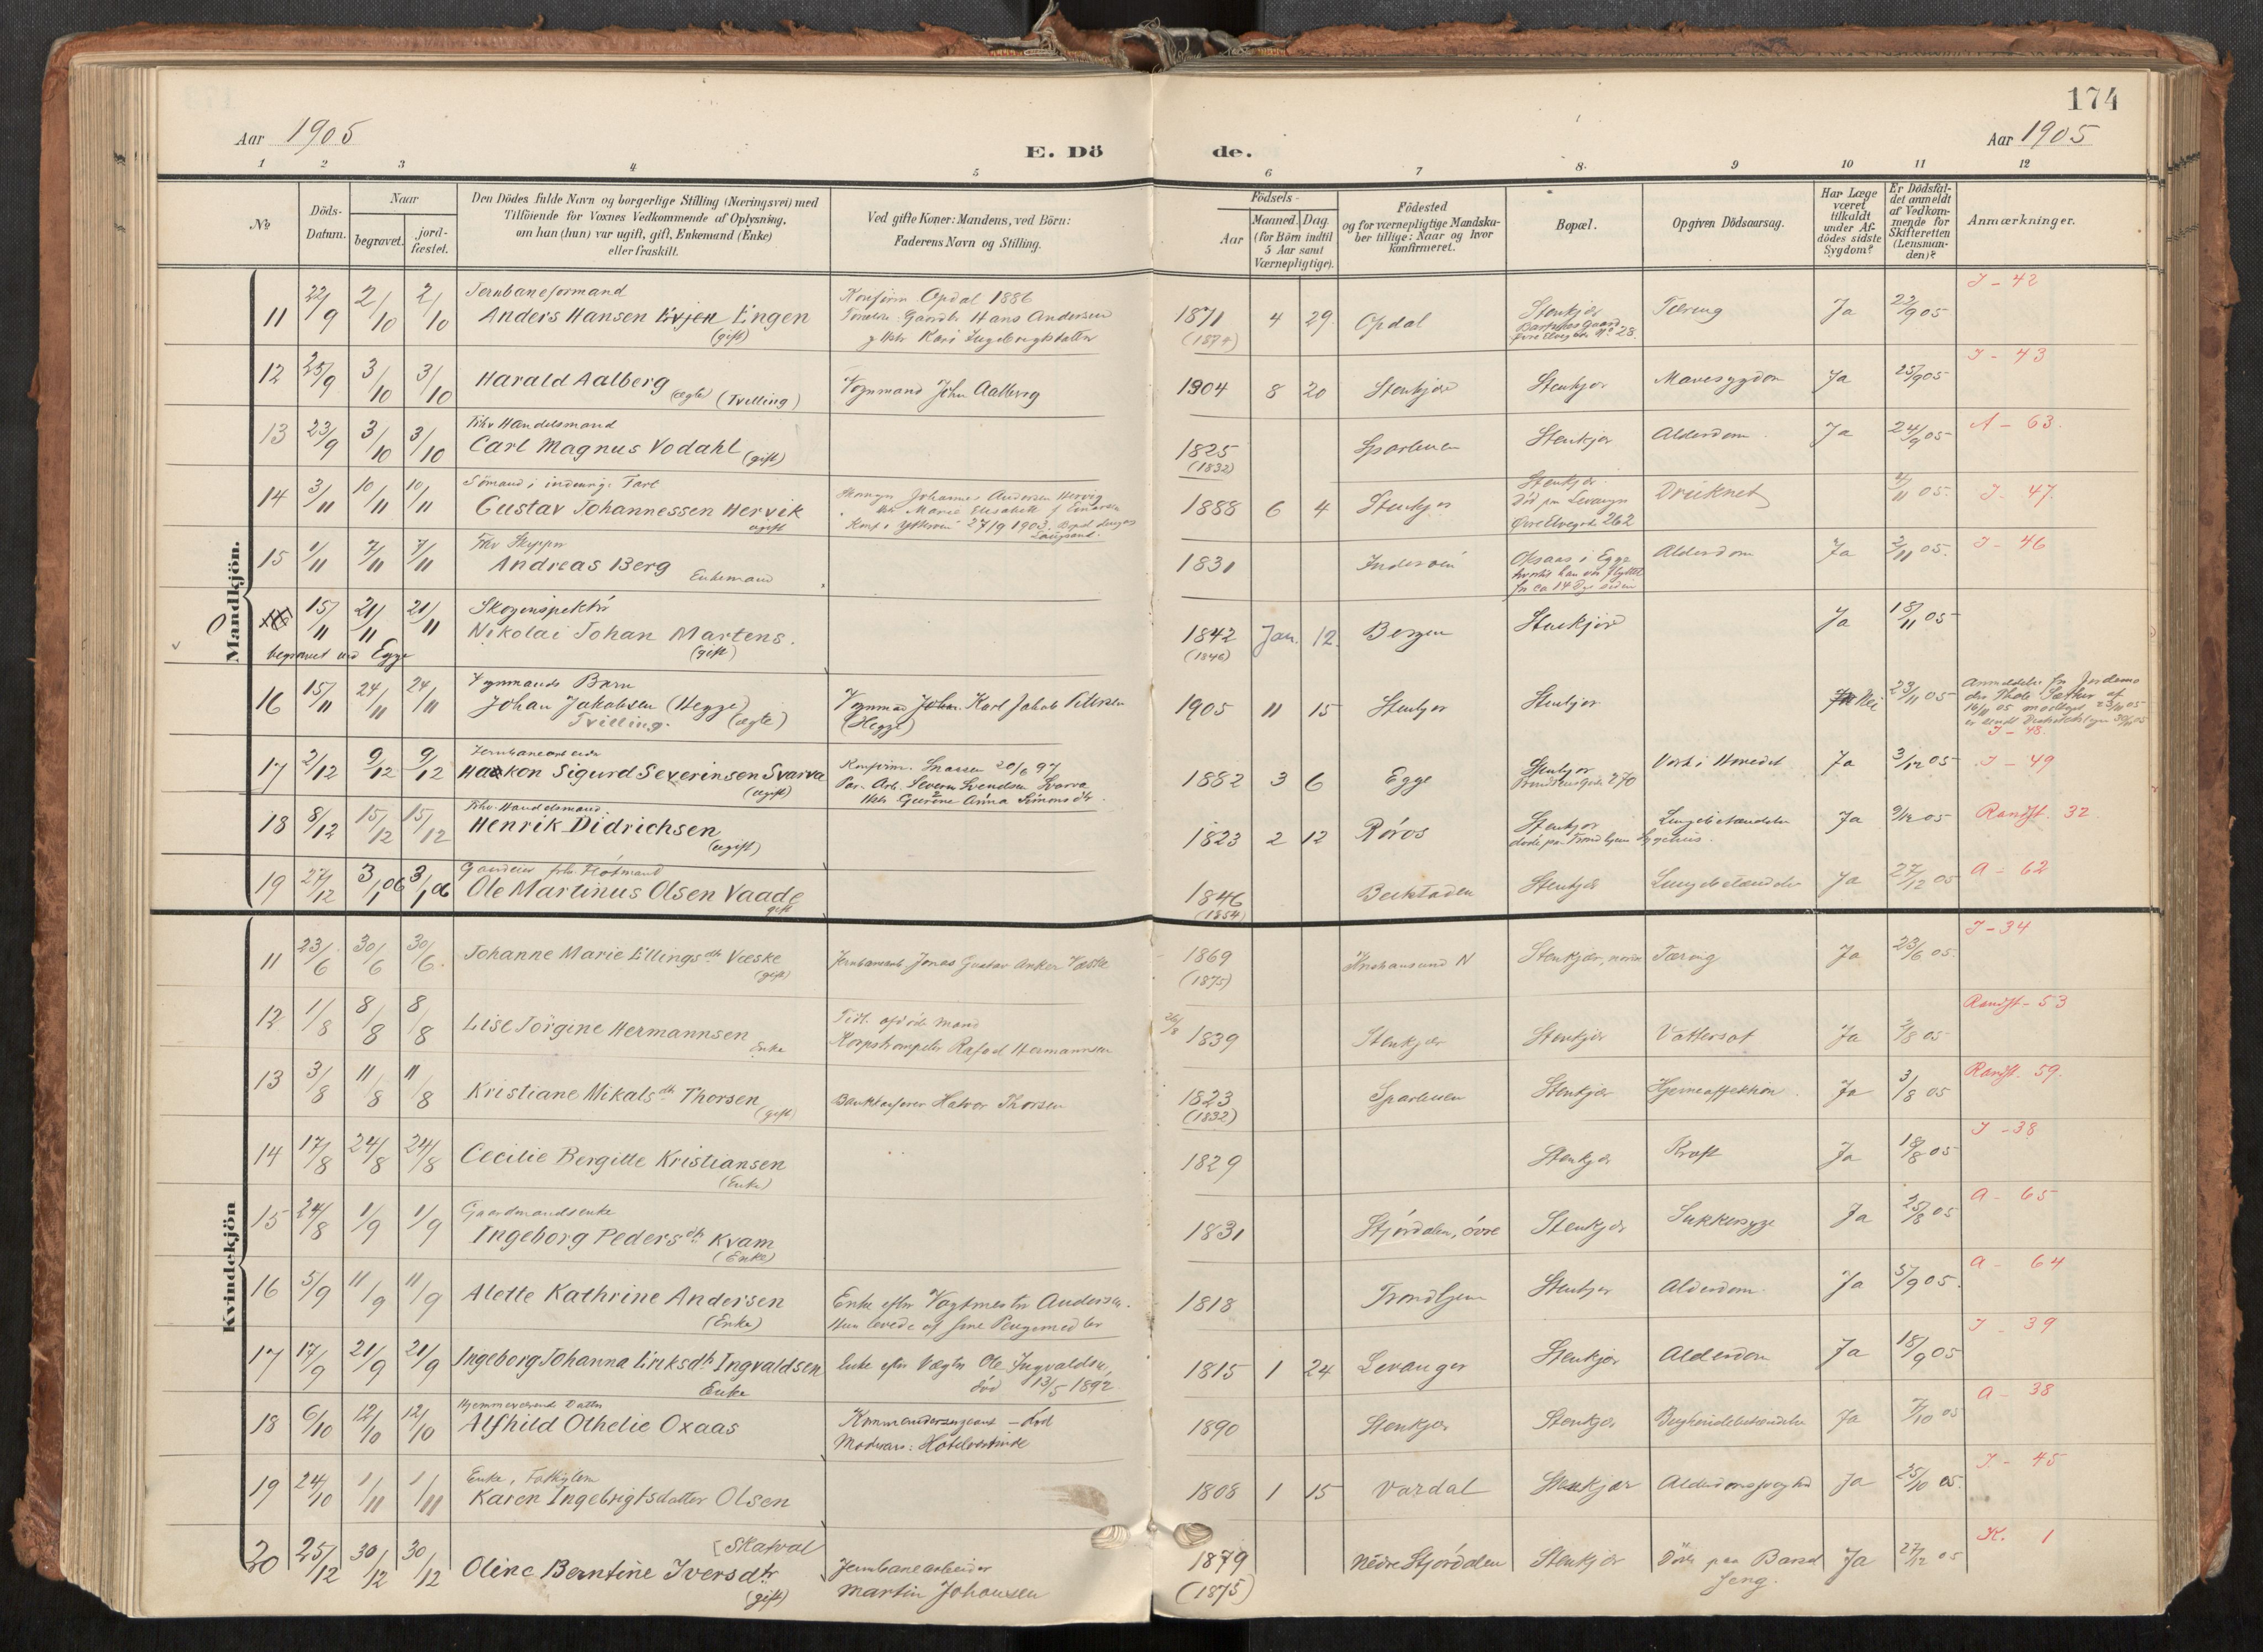 174
Aar 1905
E. Döde.
Aar 1905
1 2 3 4 5 6 7 8 9 10 11 12
No
Döds-Datum.
Naar
begravet.
jord-fæstet.
Den Dödes fulde Navn og borgerlige Stilling (Næringsvei) med
Tilföiende for Voxnes Vedkommende af Oplysning,
om han (hun) var ugift, gift, Enkemand (Enke)
eller fraskilt.
Ved gifte Koner: Mandens, ved Börn:
Faderens Navn og Stilling.
Födsels-
Aar
Maaned. Dag.
(for Börn indtil
5 Aar samt
Værnepligtige).
Födested
og for værnepligtige Mandska-
ber tillige: Naar og hvor
konfirmeret.
Bopæl.
Opgiven Dödsaarsag.
Har Læge
været
tilkaldt
under Af-
dödes sidste
Sygdom?
Er Dödsfal-
det anmeldt
af Vedkom-
mende for
Skifteretten
(Lensman-
den)?
Anmærkninger.
Mandkjön.
11 22/9 2/10 2/10 Jernbaneformand
Anders Hansen Engen
(gift)
Konfirm. Opdal 1886
Hans Andersen
Kari Ingebrigtsdatter
1871 4 29 Opdal Stenkjer Tæring Ja 22/9 05 J - 42
(1874)
12 25/9 3/10 3/10 Harald Aalberg (ægte) (Tvilling) Vognmand John Aalberg 1904 8 20 Stenkjær Stenkjer Mavesygdom Ja 25/9 05 J - 43
13 23/9 3/10 3/10 Fhv Handelsmand
Carl Magnus Vodahl (gift) 1825 Sparbuen Stenkjer Alderdom. Ja 24/9 05 A - 63.
(1832)
14 3/11 10/11 10/11 Sömand i indenrigs Fart
Gustav Johannessen Hervik
ugift
Johannes Andersen Hervig
Marie Elisabeth
27/9 1903
1888 6 4 Stenkjer Stenkjer. Druknet 4/11 05. J - 47.
Död paa Levanger
Øvre Elvegade 262
15 1/11 7/11 7/11 Fhv Skipper
Andreas Berg Enkemand 1831 Inderöen i Egge Alderdom Ja 2/11 05. J - 46
hvortil han var flyttet
for ca 14 Dage siden
15/11 21/11 21/11 Skoginspektör
Nikolai Johan Martens.
(gift)
begravet ved Egge
1842 Jan. 12. Bergen Stenkjær Ja 18/11 05
(1846)
16 15/11 24/11 24/11 Vognmands Barn
Johan Jakobsen (Hegge)
Tvilling. (ægte)
Vognmand Karl Jakob Petersen
(Hegge)
1905 11 15 Stenkjer Stenkjer Nei 23/11 05
J - 48.
17 2/12 9/12 9/12 Jernbanearbeider
Haakon Sigurd Severinsen Svarva
(ugift)
Konfirm. Snaasen 20/6 97
Par. Arb. Severin Svendsen Svarva
Gurine Anna Simonsdtr.
1882 3 6 Egge Stenkjer Værk i Hovedet Ja 3/12 05 J - 49
18 8/12 15/12 15/12 Fhv. Handelsmand.
Henrik Didrichsen
(ugift)
1823 2 12 Röros Stenkjer Lungebetændelse Ja 9/12 05 Randft. 32.
döde paa Trondhjems Sygehus.
19 27/12 3/1 06 3/1 06 Gaardeier fhv. Flötmand
Ole Martinus Olsen Vaade
gift
1846 Beitstaden Stenkjer Lungebetændelse Ja 27/12 05 A - 62
(1854)
Kvindekjön
11 23/6 30/6 30/6 Johanne Marie Ellingsdtr Væske
(gift)
Jernbanearb. Jonas Gustav Anker Væske
1869 Kristiansund N Stenkjær, Tæring Ja 23/6 05. J - 34
(1875)
12 1/8 8/8 8/8 Lise Jörgine Hermannsen
Enke
Tidl. afdöde Mand
Korpstrompeter Rafael Hermannsen
26/8 1839 Stenkjær Stenkjer Vattersot Ja 2/8 05 Randft - 53
13 3/8 11/8 11/8 Kristiane Mikalsdtr Thorsen
(gift)
Bankkasserer Halvor Thorsen
1823 Sparbuen Stenkjer Hjerneaffektion. Ja 3/8 05 Randft. 59.
(1832)
14 17/8 24/8 24/8 Cecilie Bergitte Kristiansen
(Enke)
1829 Stenkjer Kræft Ja 18/8 05 J - 38
15 24/8 1/9 1/9 Gaardmandsenke
Ingeborg Pedersdtr Kvam
(Enke)
1831 Stjördalen, övre Stenkjer Sukkersyge Ja 25/8 05 A - 65
16 5/9 11/9 11/9 Alette Kathrine Andersen
(Enke)
Enke efter Vagtmester Andersen.
Hun levede af sine Pengemidler
1818 Trondhjem Stenkjer Alderdom Ja 5/9 05. A - 64
17 17/9 21/9 21/9 Ingeborg Johanna Eriksdtr Ingvaldsen
Enke
Enke efter Vægter Ole Ingvaldsen,
död 13/5 1892.
1815 1 24 Levanger Stenkjer Alderdom Ja 18/9 05 J - 39
18 6/10 12/10 12/10 Hjemmeværende Datter
Alfhild Othelie Oxaas
Kommandersergeant - död
Moderen: Hotelvertinde
1890 Stenkjer Stenkjer Ja 7/10 05 A - 38
19 24/10 1/11 1/11 Enke, Fattiglem
Karen Ingebrigtsdatter Olsen
1808 1 15 Værdal Stenkjær Alderdomssvaghed Ja 25/10 05. J - 45
20 25/12 30/12 30/12 [Skatval
Oline Berntine Iversdtr.
(gift)
Jernbanearbeider
Martin Johansen
1879 Nedre Stjördalen Stenkjer Döde paa Barsel Ja 27/12 05 K. 1
(1875) seng.